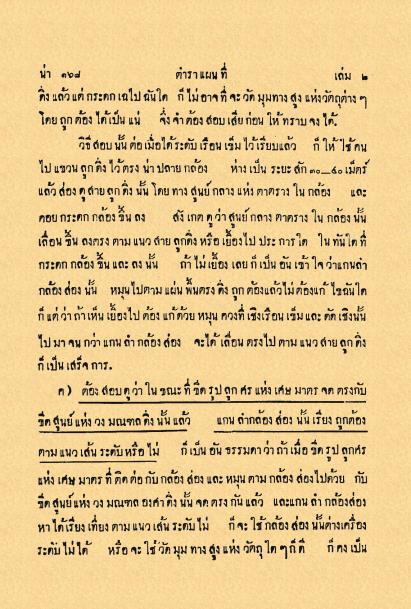 น่า ๓๖๘ ตำราแผนที่ เล่ม ๒
ดิ่ง แล้ว แต่ กระดก เฉไป ฉันใด ก็ ไม่ อาจ ที่ จะ วัด มุมทาง สูง แห่งวัตถุต่าง ๆ
โดย ถูก ต้อง ได้ เป็น แน่ จึ่ง จำ ต้อง สอบ เสีย ก่อน ให้ ทราบ จง ได้.
วิธี สอบ นั้น ต่อ เมื่อ ได้ ระดับ เรือน เข็ม ไว้ เรียบ แล้ว ก็ ให้ ใช้ คน
ไป แขวน ลูก ดิ่ง ไว้ ตรง น่า ปลาย กล้อง ห่าง เป็น ระยะ สัก ๓๐—๔๐ เม็ตร์
แล้ว ส่อง ดู สาย ลูก ดิ่ง นั้น โดย ทาง สูนย์ กลาง แห่ง ตาตราง ใน กล้อง และ
คอย กระดก กล้อง ขึ้น ลง สัง เกต ดู ว่า สูนย์ กลาง ตาตราง ใน กล้อง นั้น
เลื่อน ขึ้น ลงตรง ตาม แนว สาย ลูกดิ่ง หรือ เยื้อง ไป ประ การ ใด ใน ทันใด ที่
กระดก กล้อง ขึ้น และ ลง นั้น ถ้า ไม่ เยื้อง เลย ก็ เป็น อัน เข้า ใจ ว่า แกนลำ
กล้อง ส่อง นั้น หมุน ไปตาม แผ่น พื้นตรง ดิ่ง ถูก ต้องแล้ว ไม่ ต้องแก้ ไข ฉันใด
ก็ แต่ ว่า ถ้า เห็น เยื้อง ไป ต้อง แก้ ด้วย หมุน ควงที่ เชิงเรือน เข็ม และ ดัด เชิงนั้น
ไป มา จน กว่า แกน ลำ กล้อง ส่อง จะได้ เลื่อน ตรง ไป ตาม แนว สาย ลูก ดิ่ง
ก็ เป็น เสร็จ การ.
ค) ต้อง สอบ ดู ว่า ใน ขณะ ที่ ขีด รูป ลูก ศร แห่ง เศษ มาตร จด ตรงกับ
ขีด สูนย์ แห่ง วง มณฑล ดิ่ง นั้น แล้ว แกน ลำกล้อง ส่อง นั้น เรียง ถูกต้อง
ตาม แนว เส้น ระดับ หรือ ไม่ ก็ เป็น อัน ธรรมดา ว่า ถ้า เมื่อ ขีด รูป ลูกศร
แห่ง เศษ มาตร ที่ ติด ต่อ กับ กล้อง ส่อง และ หมุน ตาม กล้อง ส่องไปด้วย กับ
ขีด สูนย์ แห่ง วง มณฑล องศา ดิ่ง นั้น จด ตรง กัน แล้ว และแกน ลำ กล้องส่อง
หา ได้ เรียง เที่ยง ตาม แนว เส้น ระดับ ไม่ ก็ จะ ใช้ กล้อง ส่อง นั้นต่างเครื่อง
ระดับ ไม่ ได้ หรือ จะ ใช้ วัด มุม ทาง สูง แห่ง วัตถุ ใด ๆ ก็ ดี ก็ คง เป็น